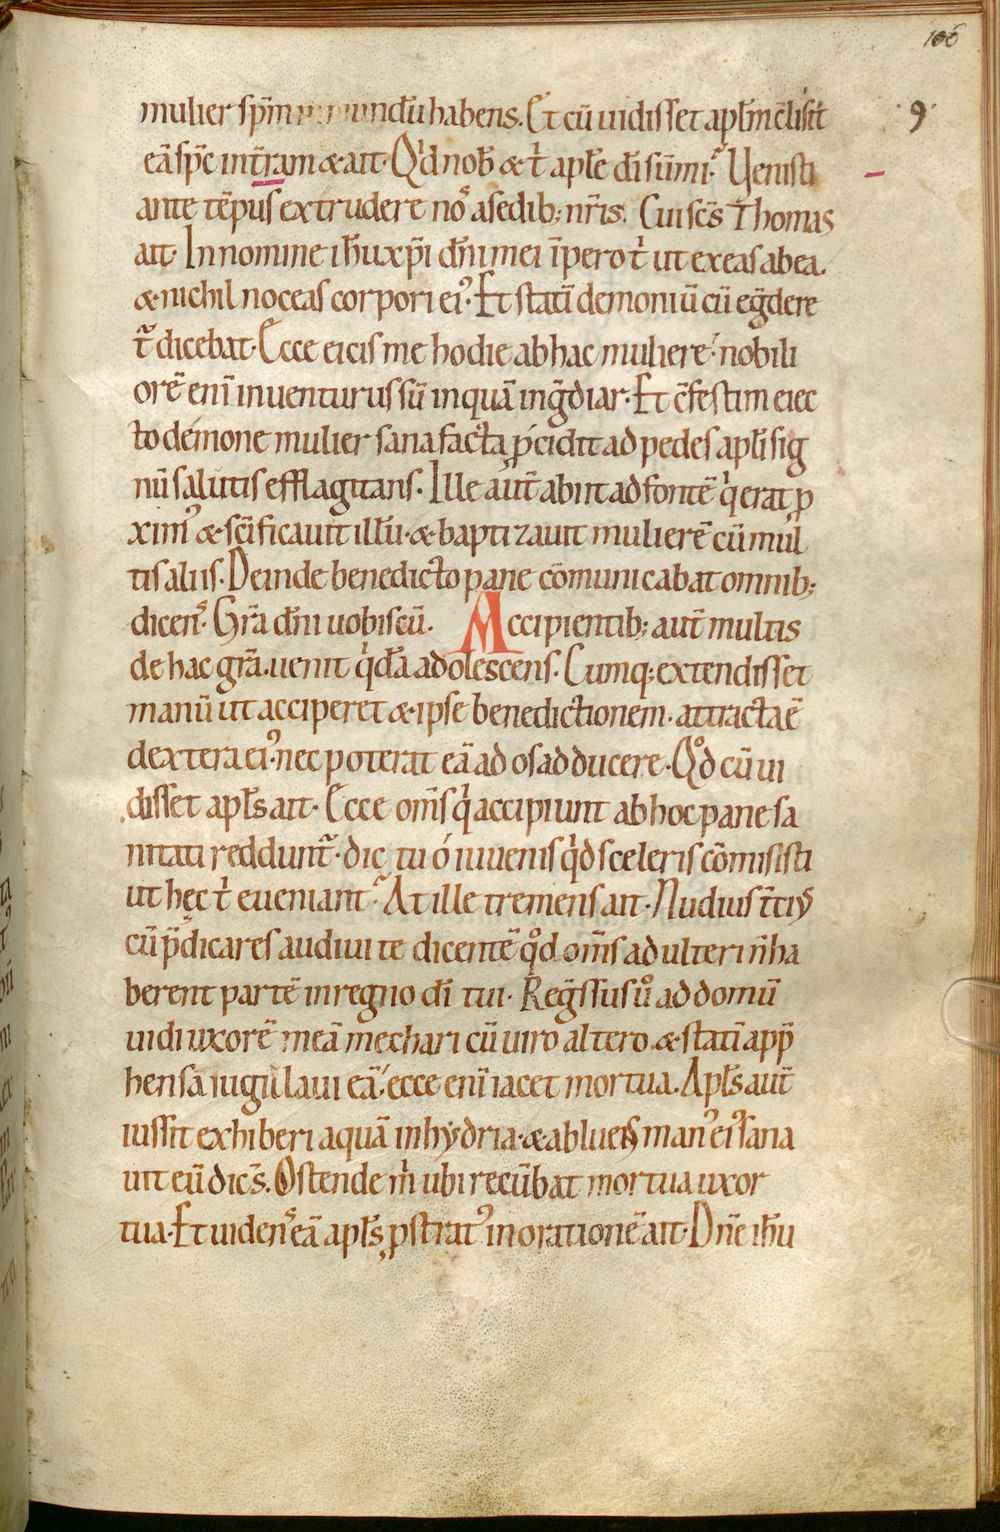 106
mulier sp̄m inmundū habens. Et cū uidisset apl̄m c̄lisit
· 9 ·
eā sp̄c in t̄ram & ait· Qͥd nob̄ & tͥ apl̄e dī sūmi? Uenisti
ante tēpus extrudere noˀ a sedib; nr̄is. Cui sc̄s Thomas
ait· In nomine ih̄u xp̄i dn̄i mei īpero tͥ ut exeas ab ea.
& nichil noceas corpori eiˀ· Et statī demoniū cū eg̃dere
t̃ dicebat· Ecce eicis me hodie ab hac muliere· nobili
orē enī inuenturus sū in quā ing̃diar· Et c̄festim eiec
to demone mulier sana facta p̄cidit ad pedes apl̄i sig
nū salutis efflagitans· Ille aut̄ abiit ad fontē qͥ erat ꝓ
ximˀ & sc̄ificauit illū· & baptizauit mulierē cū mul
tis aliis· Deinde benedicto pane cōmunicabat omnib;
dicenˀ· Gr̄a dn̄i uobiscū. Accipientib; aut̄ multis
de hac gr̄a. uenit qͥdā adolescens. Cumq; extendisset
manū ut acciperet & ipse benedictionem· attracta ē
dextera eiˀ· nec poterat eā ad os adducere· Qͦd cū ui
disset apl̄s ait· Ecce om̄s qͥ accipiunt ab hoc pane sa
nitati reddunt̃· dic tu ó iuuenis qͥd sceleris cōmisisti
ut hęc tͥ eueniant? At ille tremens ait· Nudius t̄ciꝰ
cū p̄dicares audiui te dicentē qͦd om̄s adulteri n̄ ha
berent partē in regno dī tui· Reg̃ssus uͦ ad domū
uidi uxorē meā mechari cū uiro altero & statī app̄
hensā iugulaui eā· ecce enī iacet mortua. Apl̄s aut̄
iussit exhiberi aquā in hydria· & abluens manˀ eiˀ sana
uit eū dic̄s. Ostende mͥ ubi recūbat mortua uxor
tua· Et uidenˀ eā apl̄s, ꝓstratˀ in orationē ait· Dn̄e ih̄u